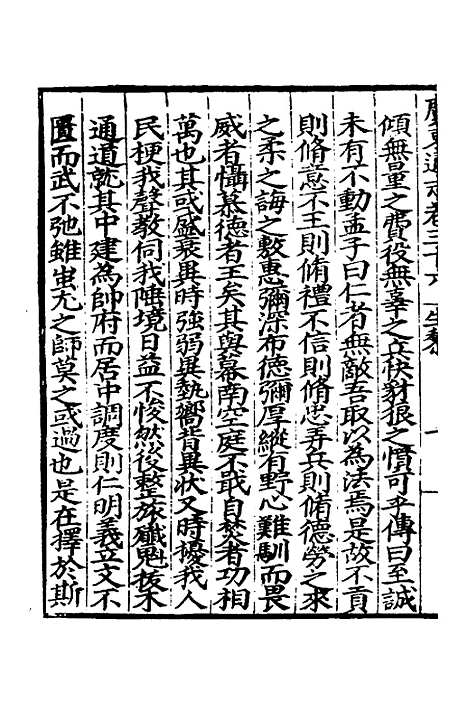 傾無量之費役無辜之兵快豺狼之憤可乎傳曰至誠
未有不動孟子曰仁者無敵吾取以為法焉是故不貢
則脩意不王則脩禮不信則脩忠弄兵則脩德勞之來
之柔之誨之敷惠彌深布德彌厚縱有野心難馴而畏
威者懾慕德者王矣其與幕南空庭不敢自焚者功相
萬也其或盛衰異時強弱異勢嚮昔異狀又時擾我人
民梗我聲教伺我陲境日益不悛然後整旅殲魁拔木
通道就其中建為帥府而居中調度則仁明義立文不
匱而武不弛雖蚩尤之師莫之或過也是在擇於斯